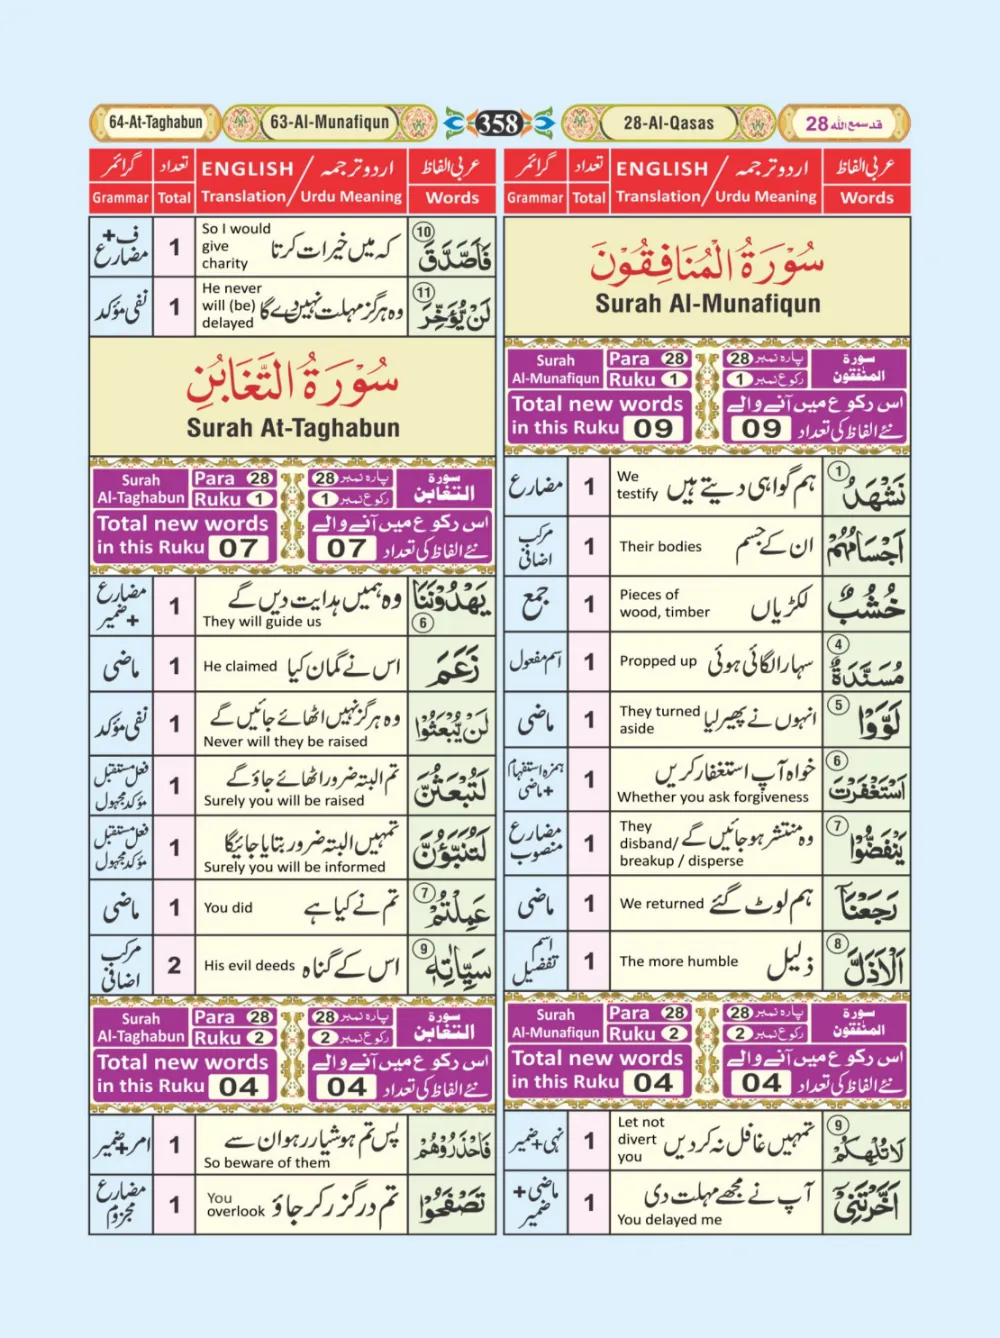 64-At-Taghabun
63-Al-Munafiqun
358
28-Al-Qasas
قد سمع اللہ 28
عربی الفاظ اردو ترجمہ / ENGLISH تعداد گرائمر
Words Urdu Meaning / Translation Total Grammar
سُوْرَةُ الْمُنَافِقُوْنَ
Surah Al-Munafiqun
Surah Al-Munafiqun Para 28 Ruku 1
سورة المنٰفقون پارہ نمبر 28 رکوع نمبر 1
Total new words in this Ruku 09
اس رکوع میں آنے والے نئے الفاظ کی تعداد 09
① نَشْهَدُ ہم گواہی دیتے ہیں We testify 1 مضارع
اَجْسَامُهُمْ ان کے جسم Their bodies 1 مرکب اضافی
خُشُبٌ لکڑیاں Pieces of wood, timber 1 جمع
④ مُسَنَّدَةٌ سہارا لگائی ہوئی Propped up 1 اسم مفعول
⑤ لَوَّوْا انہوں نے پھیر لیا They turned aside 1 ماضی
⑥ اَسْتَغْفَرْتَ خواہ آپ استغفار کریں Whether you ask forgiveness 1 ہمزہ استفہام + ماضی
⑦ يَنْفَضُّوْا وہ منتشر ہو جائیں گے They disband/ breakup / disperse 1 مضارع منصوب
رَجَعْنَآ ہم لوٹ گئے We returned 1 ماضی
⑧ اَلْاَذَلَّ ذلیل The more humble 1 اسم تفضیل
Surah Al-Munafiqun Para 28 Ruku 2
سورة المنٰفقون پارہ نمبر 28 رکوع نمبر 2
Total new words in this Ruku 04
اس رکوع میں آنے والے نئے الفاظ کی تعداد 04
⑨ لَا تُلْهِكُمْ تمہیں غافل نہ کر دیں Let not divert you 1 نہی + ضمیر
اَخَّرْتَنِيْٓ آپ نے مجھے مہلت دی You delayed me 1 ماضی + ضمیر
عربی الفاظ اردو ترجمہ / ENGLISH تعداد گرائمر
Words Urdu Meaning / Translation Total Grammar
⑩ فَاَصَّدَّقَ کہ میں خیرات کرتا So I would give charity 1 ف + مضارع
⑪ لَنْ يُّؤَخِّرَ وہ ہرگز مہلت نہیں دے گا He never will (be) delayed 1 نفی مؤکد
سُوْرَةُ التَّغَابُنِ
Surah At-Taghabun
Surah Al-Taghabun Para 28 Ruku 1
سورة التغابن پارہ نمبر 28 رکوع نمبر 1
Total new words in this Ruku 07
اس رکوع میں آنے والے نئے الفاظ کی تعداد 07
⑥ يَهْدُوْنَنَا وہ ہمیں ہدایت دیں گے They will guide us 1 مضارع + ضمیر
زَعَمَ اس نے گمان کیا He claimed 1 ماضی
لَنْ يُّبْعَثُوْا وہ ہرگز نہیں اٹھائے جائیں گے Never will they be raised 1 نفی مؤکد
لَتُبْعَثُنَّ تم البتہ ضرور اٹھائے جاؤ گے Surely you will be raised 1 فعل مستقبل مؤکد مجہول
لَتُنَبَّؤُنَّ تمہیں البتہ ضرور بتایا جائیگا Surely you will be informed 1 فعل مستقبل مؤکد مجہول
⑦ عَمِلْتُمْ تم نے کیا ہے You did 1 ماضی
⑨ سَيِّاٰتِهٖ اس کے گناہ His evil deeds 2 مرکب اضافی
Surah Al-Taghabun Para 28 Ruku 2
سورة التغابن پارہ نمبر 28 رکوع نمبر 2
Total new words in this Ruku 04
اس رکوع میں آنے والے نئے الفاظ کی تعداد 04
فَاحْذَرُوْهُمْ پس تم ہوشیار رہو ان سے So beware of them 1 امر + ضمیر
تَصْفَحُوْا تم درگزر کر جاؤ You overlook 1 مضارع مجزوم